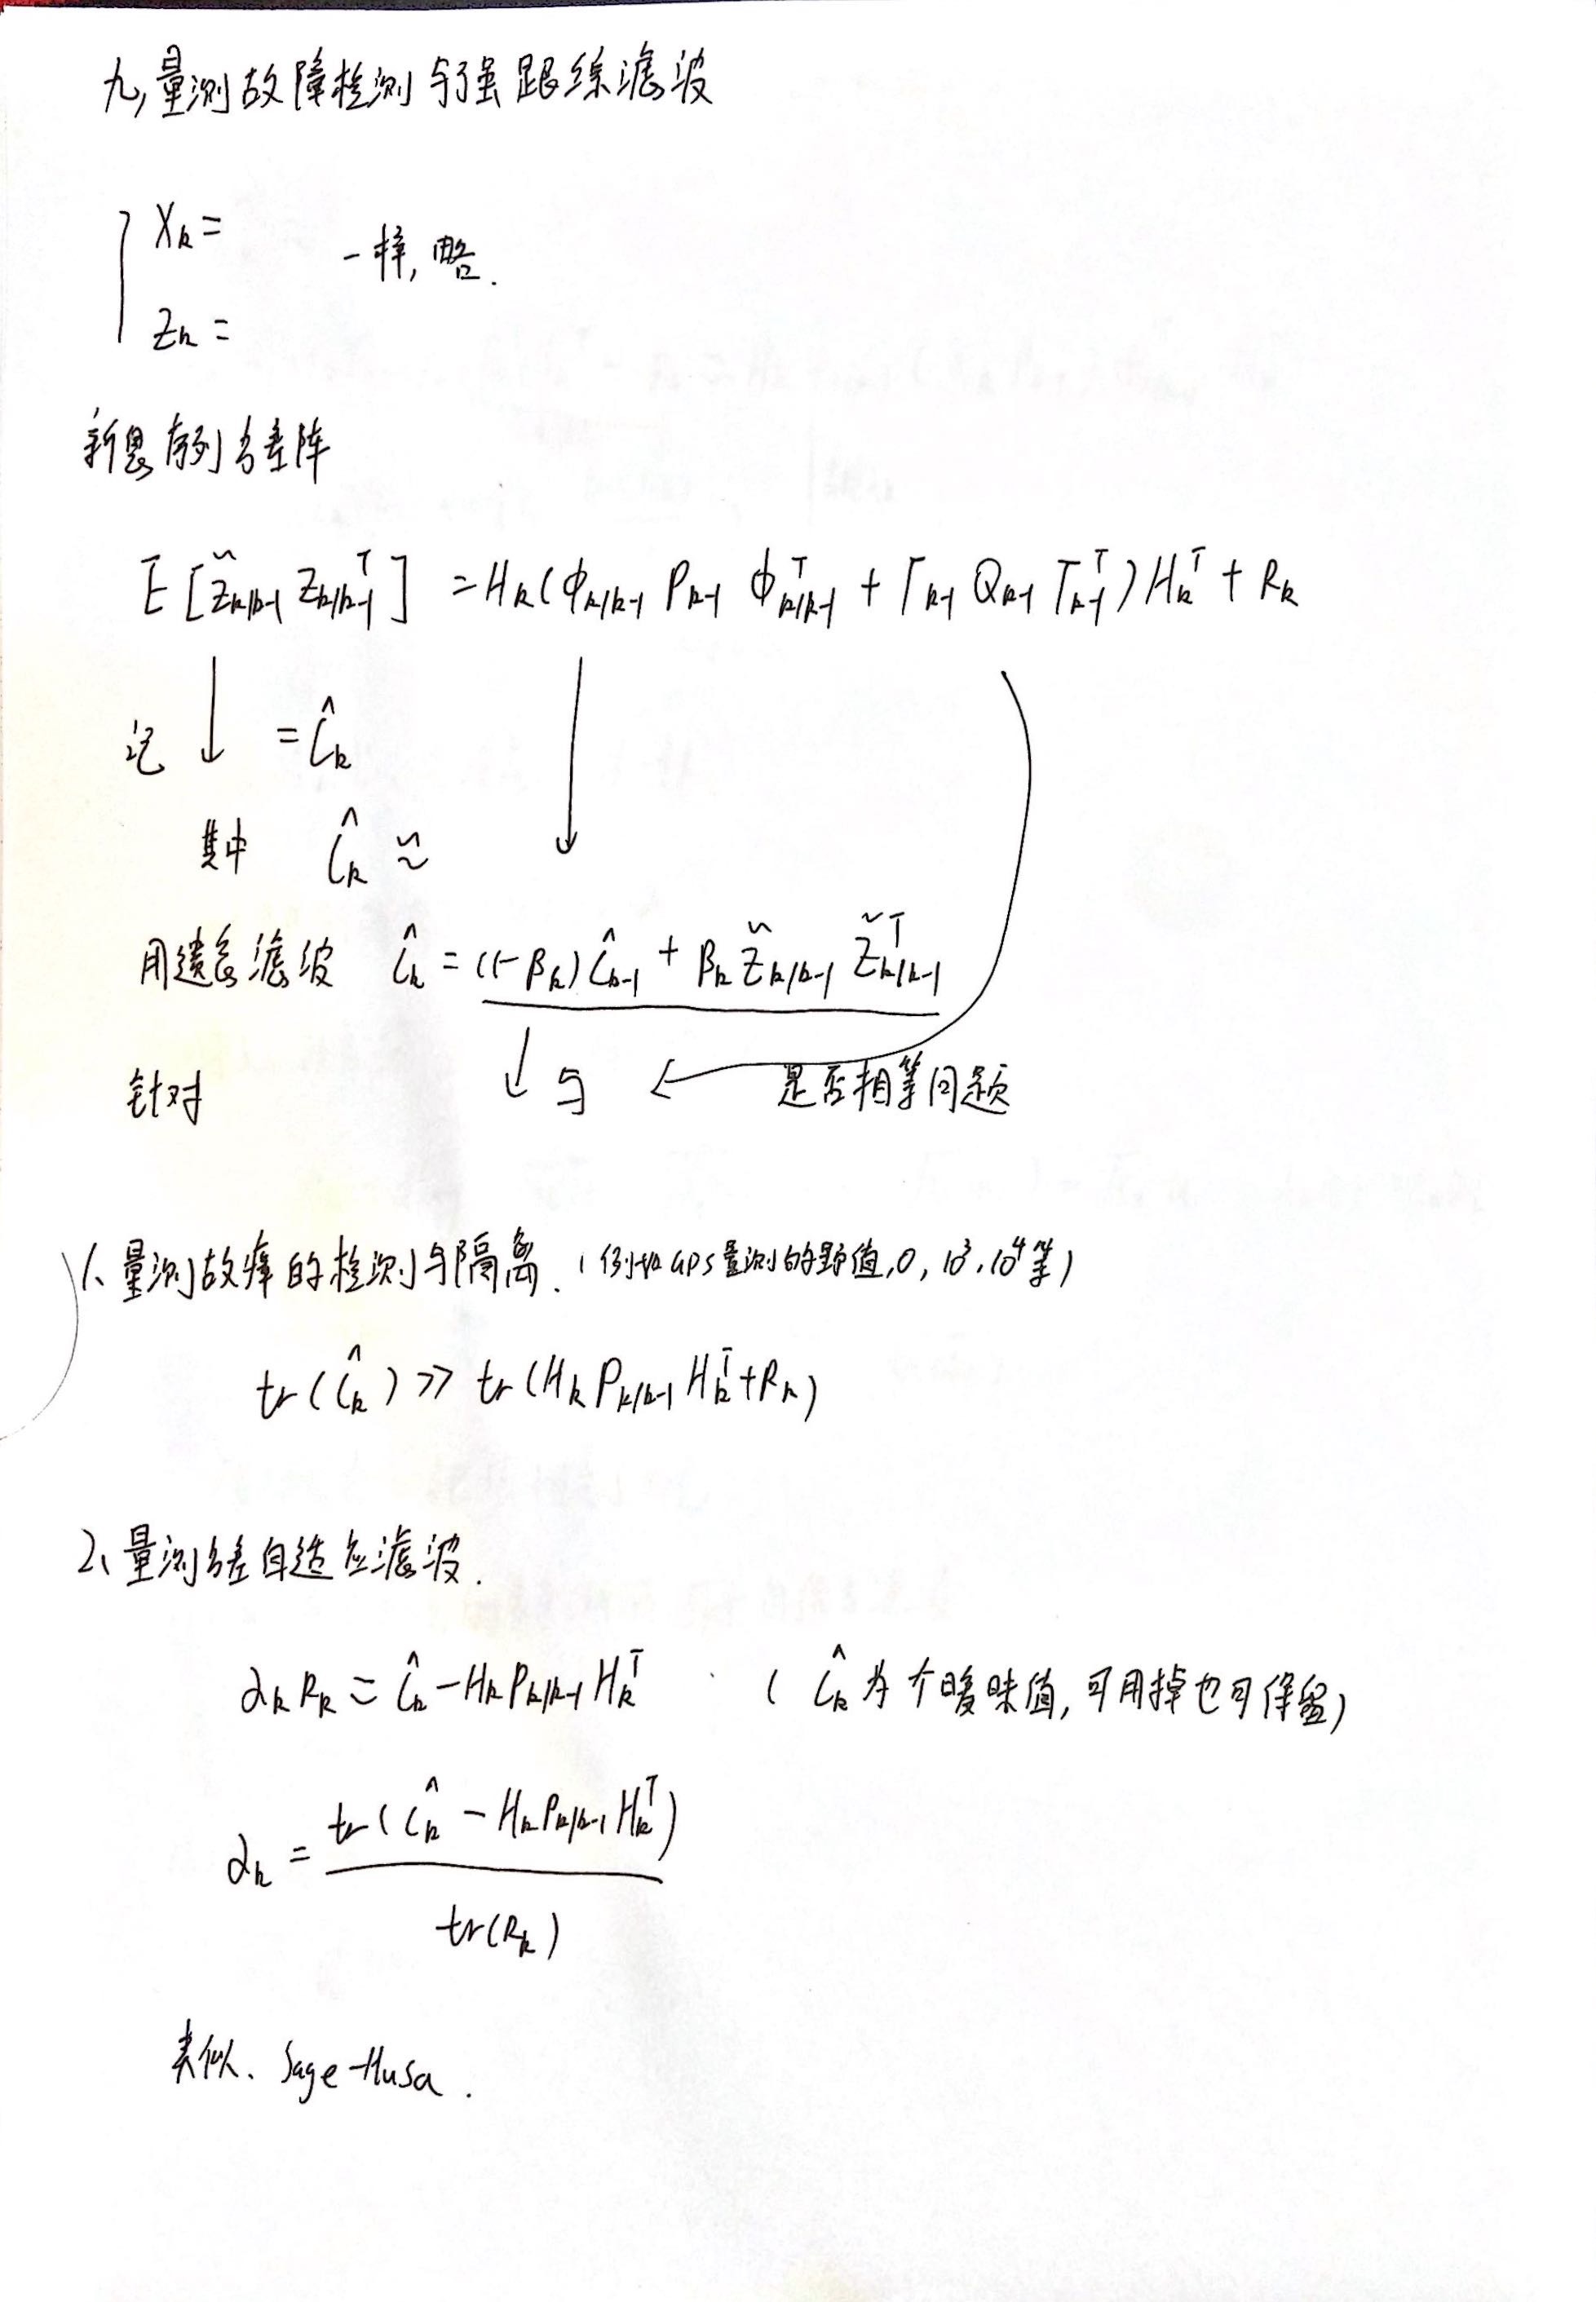 九、量测故障检测与强跟踪滤波
X_k =
一样, 略.
Z_k =
新息序列方差阵
E[Z̃_{k/k-1} Z_{k/k-1}^T] = H_k(ϕ_{k/k-1} P_{k-1} ϕ_{k/k-1}^T + Γ_{k-1} Q_{k-1} Γ_{k-1}^T)H_k^T + R_k
记 ↓ = Ĉ_k
其中 Ĉ_k ≈
用遗忘滤波 Ĉ_k = (1-β_k)Ĉ_{k-1} + β_k Z̃_{k/k-1} Z̃_{k/k-1}^T
针对 ↓ 与 ← 是否相等问题
1、量测故障的检测与隔离. (例如GPS量测的野值, 0, 10^3, 10^4等)
tr(Ĉ_k) >> tr(H_k P_{k/k-1} H_k^T + R_k)
2、量测方差自适应滤波.
α_k R_k = Ĉ_k - H_k P_{k/k-1} H_k^T (Ĉ_k 为个暧昧值, 可用掉也可保留)
α_k = tr(Ĉ_k - H_k P_{k/k-1} H_k^T) / tr(R_k)
类似、Sage-Husa.